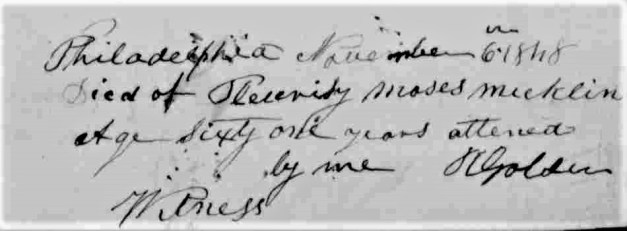 Philadelphia November 6th 1848
Died of Pleurisy Moses Mecklin
Age Sixty one years attened
by me Golden
Witness